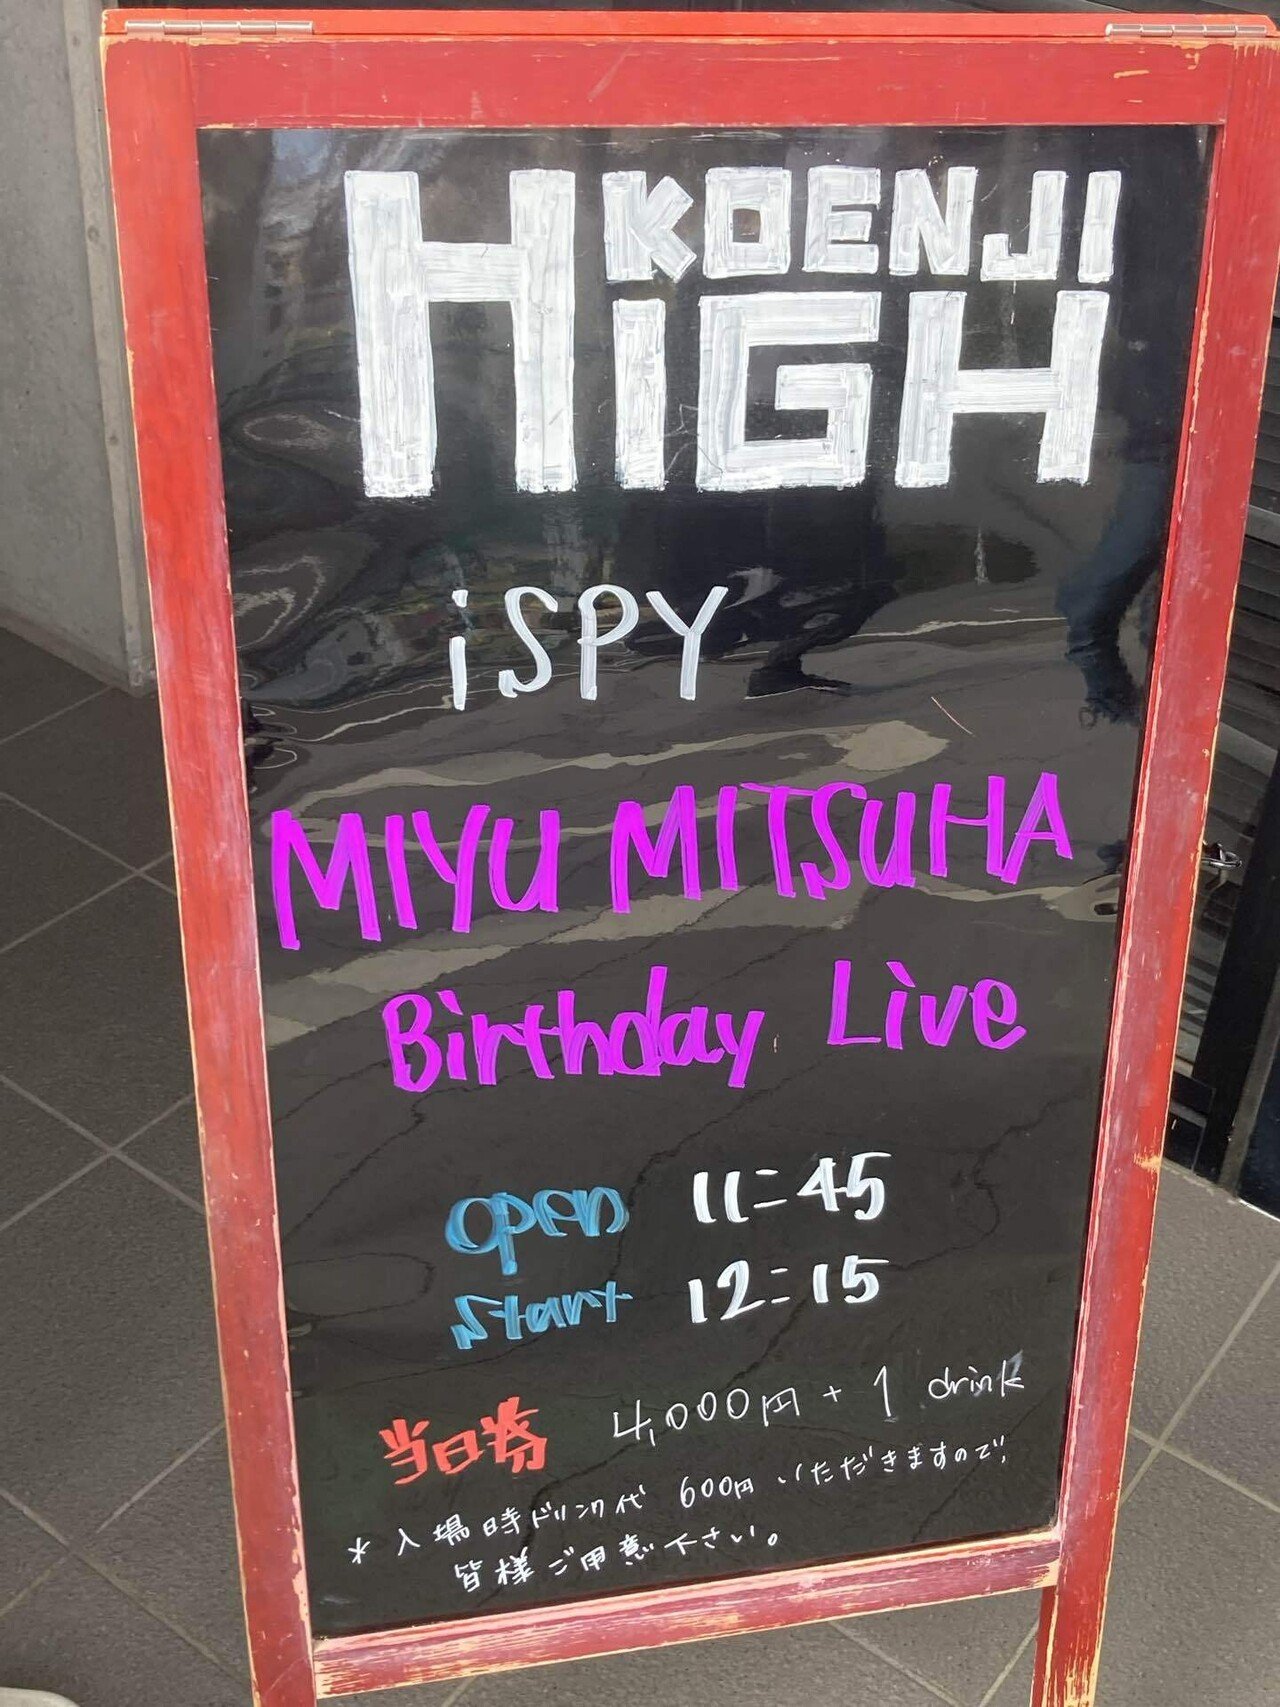 KOENJI
HIGH
iSPY
MIYU MITSUHA
Birthday Live
open 11:45
Start 12:15
当日券 4,000円 + 1 drink
* 入場時ドリンク代 600円 いただきますので、
皆様ご用意下さい。